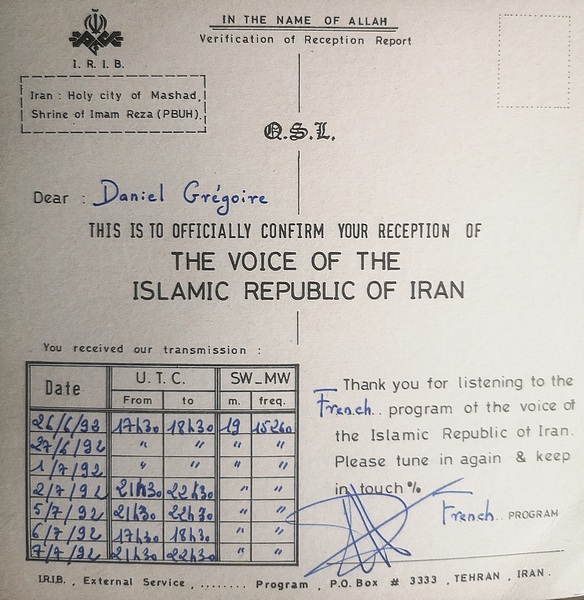 IN THE NAME OF ALLAH
Verification of Reception Report
I. R. I. B.
Iran : Holy city of Mashad,
Shrine of Imam Reza (PBUH).
Q.S.L.
Dear : Daniel Grégoire
THIS IS TO OFFICIALLY CONFIRM YOUR RECEPTION OF
THE VOICE OF THE
ISLAMIC REPUBLIC OF IRAN
You received our transmission :
Date U. T. C. SW_MW
From to m. freq.
26/6/92 17h30 18h30 19 15260
27/6/92 " " " "
1/7/92 " " " "
2/7/92 21h30 22h30 " "
5/7/92 21h30 22h30 " "
6/7/92 17h30 18h30 " "
7/7/92 21h30 22h30 " "
Thank you for listening to the
French.. program of the voice of
the Islamic Republic of Iran.
Please tune in again & keep
in touch %
French.. PROGRAM
I.R.I.B. , External Service , ........ Program , P.O. Box # 3333 , TEHRAN , IRAN .